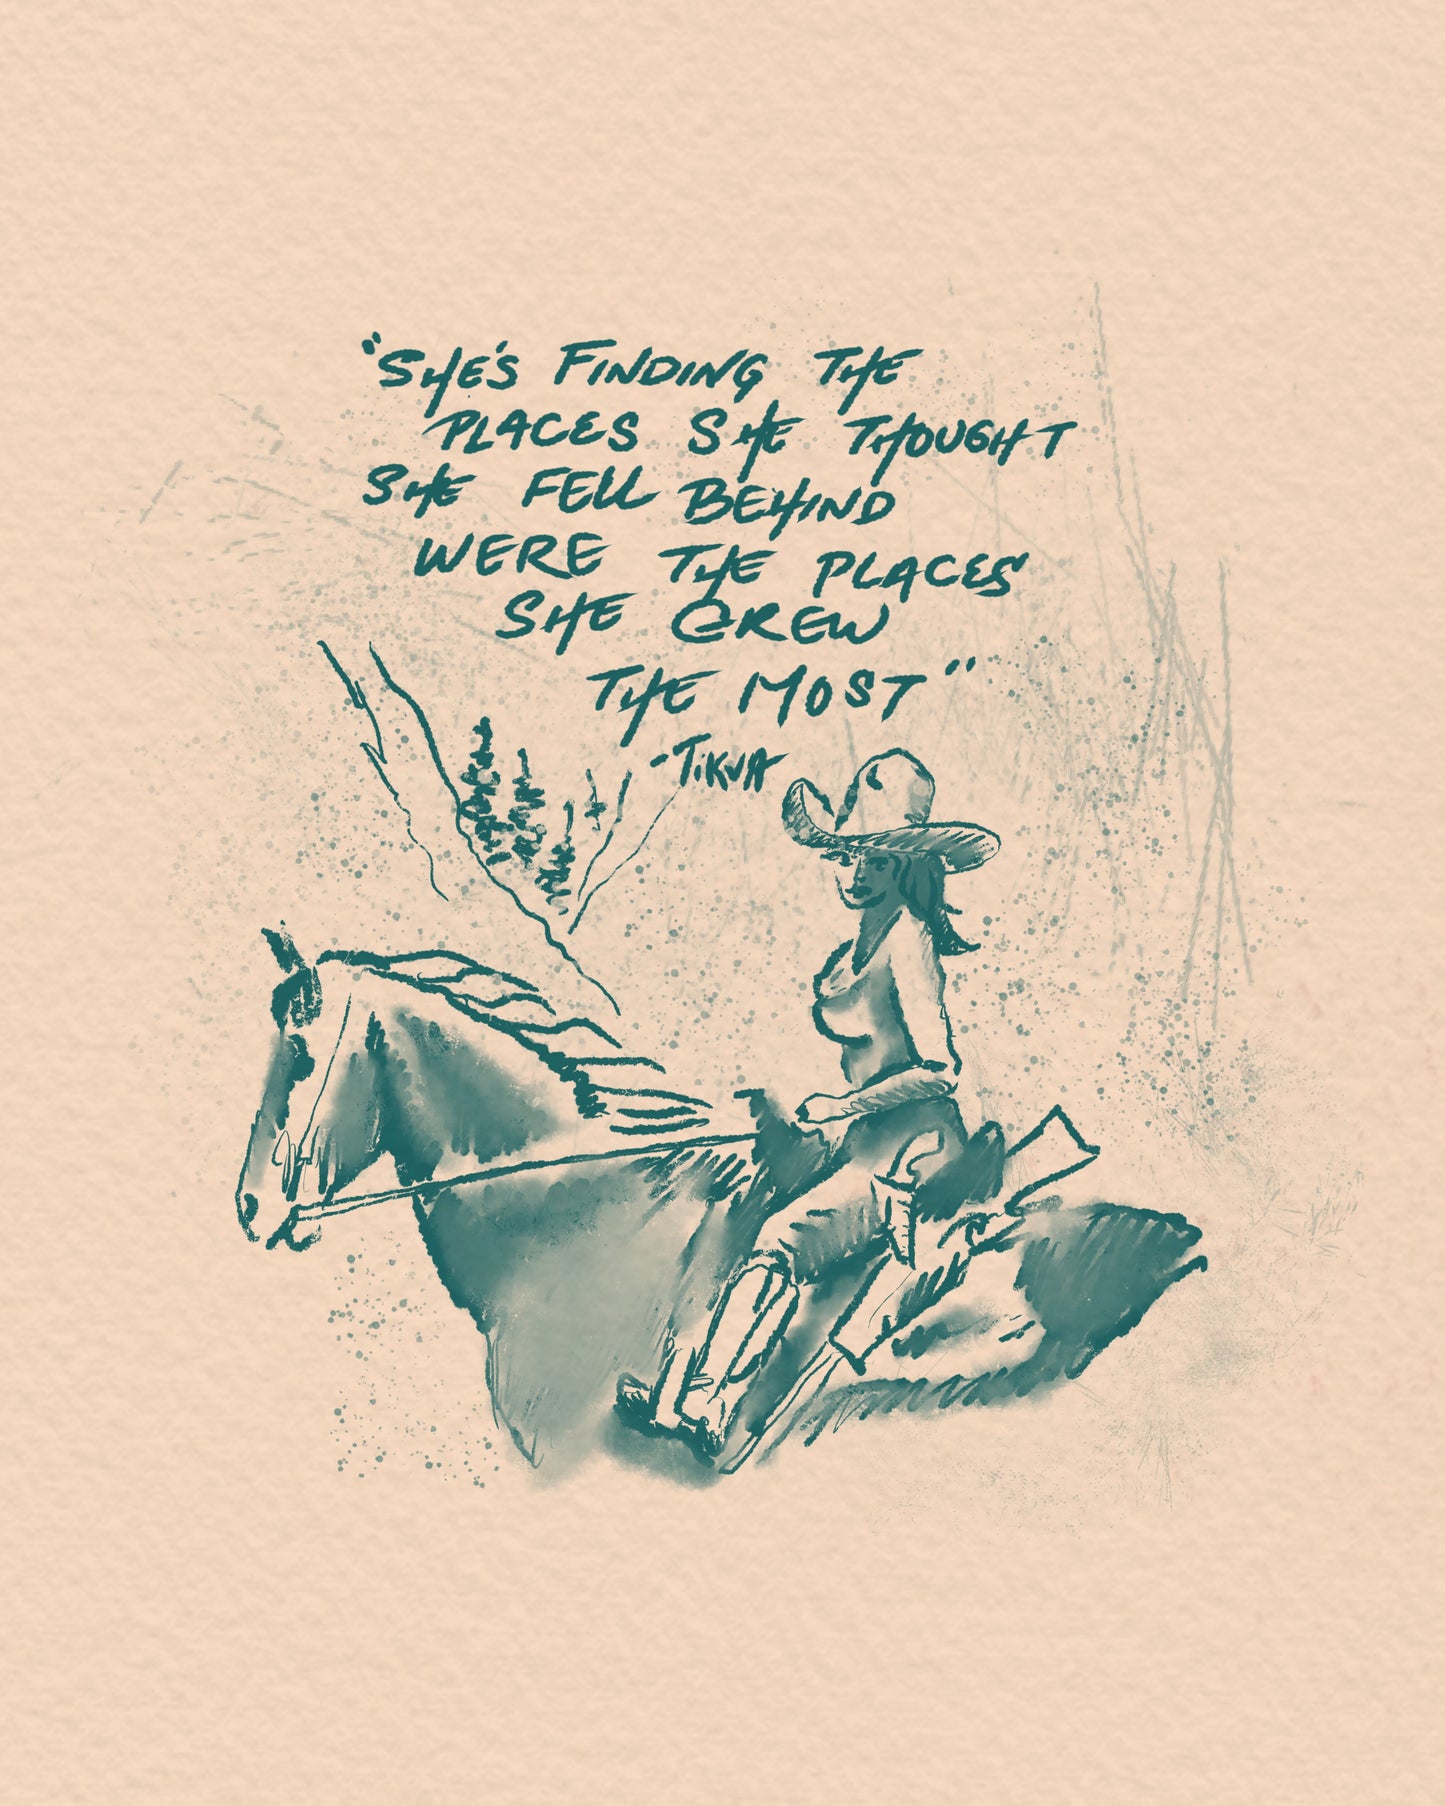 "SHE'S FINDING THE
PLACES SHE THOUGHT
SHE FELL BEHIND
WERE THE PLACES
SHE GREW
THE MOST"
-TiKVA